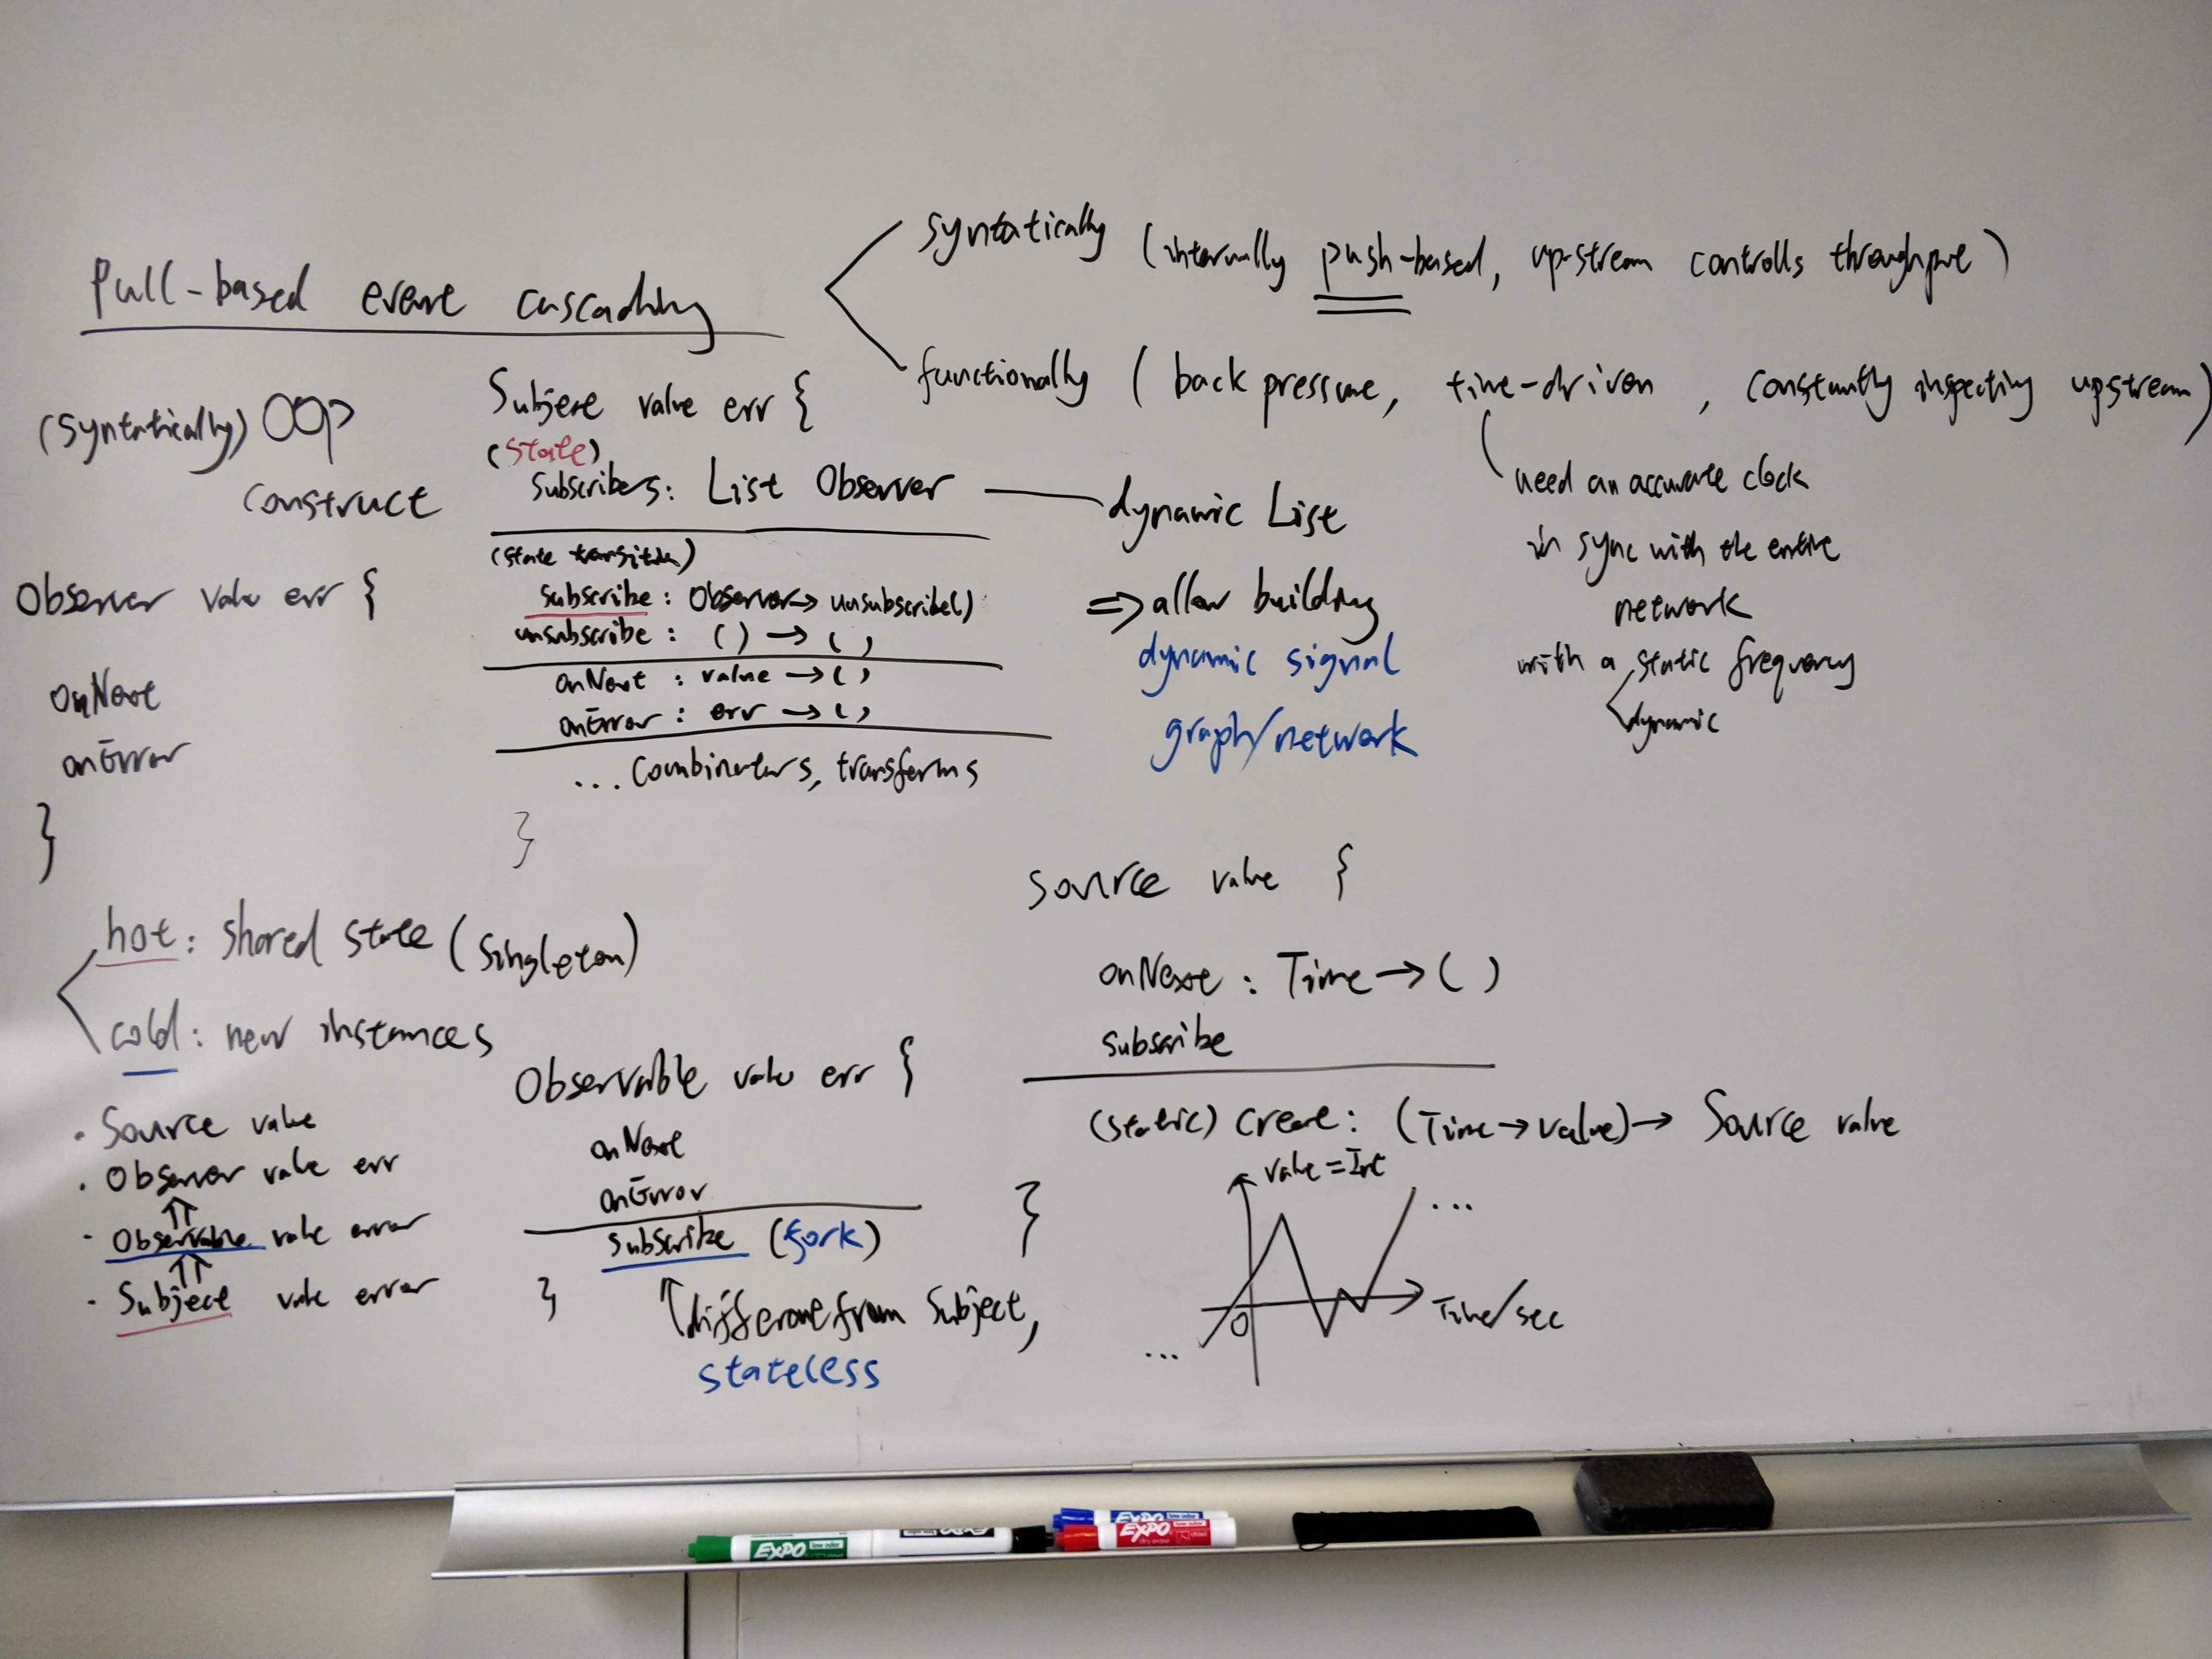 Pull-based event cascading
syntatically (internally push-based, up-stream controlls throughput)
functionally (back pressure, time-driven, constantly inspecting upstream)
need an accurate clock
in sync with the entire
network
with a static frequency
dynamic
(syntatically) OOP
construct
Observer value err {
onNext
onError
}
Subject value err {
(state)
subscribers: List Observer
dynamic List
(state transition)
subscribe: Observer → unsubscribe()
unsubscribe: () → ()
onNext: value → ()
onError: err → ()
... combinators, transforms
}
⇒ allow building
dynamic signal
graph/network
hot: shared state (singleton)
cold: new instances
· Source value
· Observer value err
⇑
· Observable value error
⇑
· Subject value error
Observable value err {
onNext
onError
subscribe (fork)
}
↑ different from Subject,
stateless
Source value {
onNext: Time → ()
subscribe
(static) create: (Time → value) → Source value
value = Int
...
Time/sec
0
...
}
EXPO low odor
EXPO
EXPO low odor
EXPO low odor
dry erase